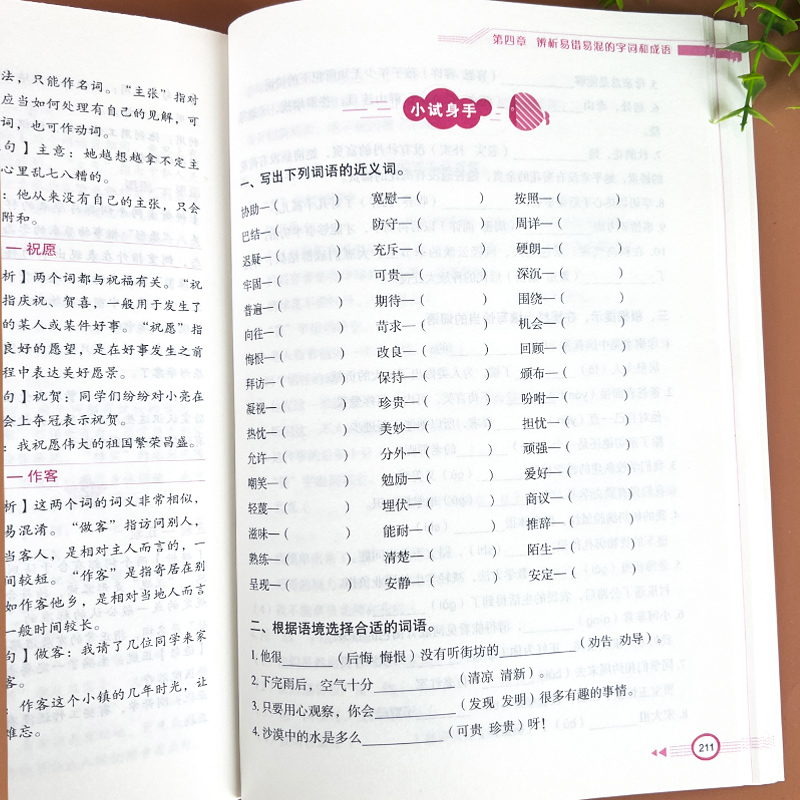 法，只能作名词。“主张”指对
应当如何处理有自己的见解，可
词，也可作动词。
句】主意：她越想越拿不定主
心里乱七八糟的。
：他从来没有自己的主张，只会
附和。
— 祝愿
析】两个词都与祝福有关。“祝
指庆祝、贺喜，一般用于发生了
的某人或某件好事。“祝愿”指
良好的愿望，是在好事发生之前
程中表达美好愿景。
句】祝贺：同学们纷纷对小亮在
会上夺冠表示祝贺。
：我祝愿伟大的祖国繁荣昌盛。
— 作客
析】这两个词的词义非常相似，
易混淆。“做客”指访问别人，
当客人，是相对主人而言的，一
间较短。“作客”是指寄居在别
如作客他乡，是相对当地人而言
一般时间较长。
句】做客：我请了几位同学来家
客。
：作客这个小镇的几年时光，让
难忘。
第四章 辨析易错易混的字词和成语
小试身手
一、写出下列词语的近义词。
协助—（ ） 宽慰—（ ） 按照—（ ）
巴结—（ ） 防守—（ ） 周详—（ ）
迟疑—（ ） 充斥—（ ） 硬朗—（ ）
牢固—（ ） 可贵—（ ） 深沉—（ ）
普遍—（ ） 期待—（ ） 围绕—（ ）
向往—（ ） 苛求—（ ） 机会—（ ）
悔恨—（ ） 改良—（ ） 回顾—（ ）
拜访—（ ） 保持—（ ） 颁布—（ ）
凝视—（ ） 珍贵—（ ） 吩咐—（ ）
热忱—（ ） 美妙—（ ） 担忧—（ ）
允许—（ ） 分外—（ ） 顽强—（ ）
嘲笑—（ ） 勉励—（ ） 爱好—（ ）
轻蔑—（ ） 埋伏—（ ） 商议—（ ）
滋味—（ ） 能耐—（ ） 推辞—（ ）
熟练—（ ） 清楚—（ ） 陌生—（ ）
呈现—（ ） 安静—（ ） 安定—（ ）
二、根据语境选择合适的词语。
1.他很______（后悔 悔恨）没有听街坊的________（劝告 劝导）。
2.下完雨后，空气十分________（清凉 清新）。
3.只要用心观察，你会________（发现 发明）很多有趣的事情。
4.沙漠中的水是多么________（可贵 珍贵）呀！
211